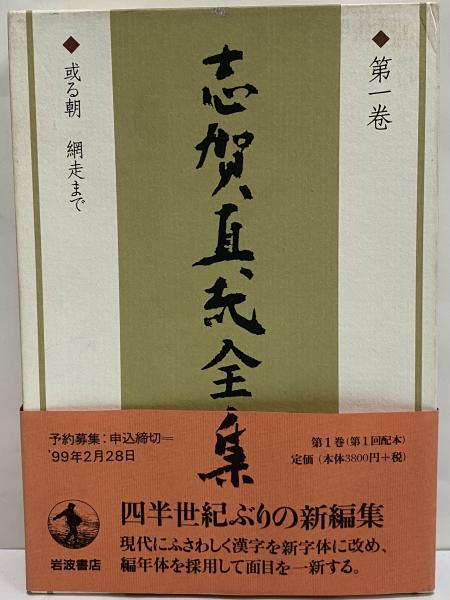 ◆第一巻
志賀直哉全集
◆或る朝 網走まで
第1巻(第1回配本)
定価(本体3800円+税)
予約募集:申込締切=
'99年2月28日
四半世紀ぶりの新編集
現代にふさわしく漢字を新字体に改め、
編年体を採用して面目を一新する。
岩波書店